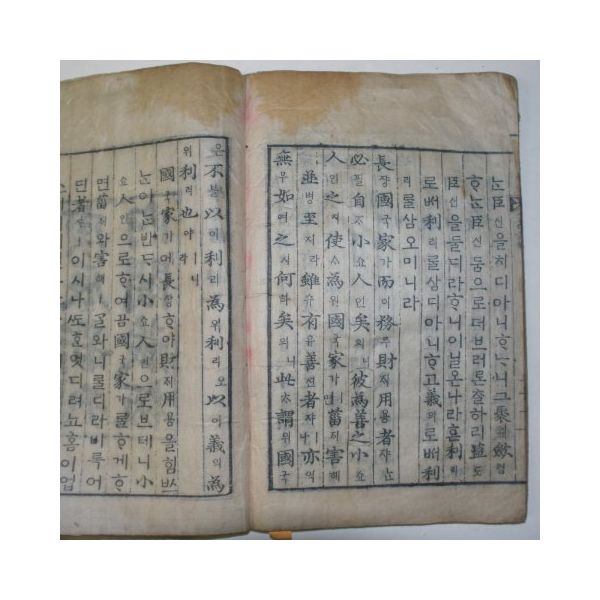 눈臣신을치디아니ᄒᆞᄂᆞ니그聚취斂렴
ᄒᆞᄂᆞᆫ臣신둠으로더브러론출하리盜도
臣신을둘디라ᄒᆞ니이닐온나라ᄒᆞᆫ利리
로ᄡᅥ利리ᄅᆞᆯ삼디아니ᄒᆞ고義의로ᄡᅥ利
리ᄅᆞᆯ삼오미니라
長댱國국家가而이務무財ᄌᆡ用용者쟈ᄂᆞᆫ
必필自ᄌᆞ小쇼人인矣의니彼爲善之小쇼
人인之지使ᄉᆞ爲위國국家가ㅣ면菑ᄌᆡ害해
並병至지라雖슈有유善션者쟈ㅣ나亦역
無무如여之지何하矣의니此ᄎᆞ謂위國국
은不블以이利리爲위利리오以이義의爲
위利리也야ㅣ라니
國국家가애長댱ᄒᆞ야財ᄌᆡ用용을힘ᄡᅳ
ᄂᆞᆫ이ᄂᆞᆫ반ᄃᆞ시小쇼人인으로브테니小
쇼人인으로ᄒᆞ여곰國국家가ᄅᆞᆯᄒᆞ게ᄒᆞ
면菑ᄌᆡ와害해ᄀᆞᆯ와니ᄅᆞᆯ디라비록어
딘者쟈ㅣ이시나ᄯᅩᄒᆞᆫ엇디려뇨홈이업